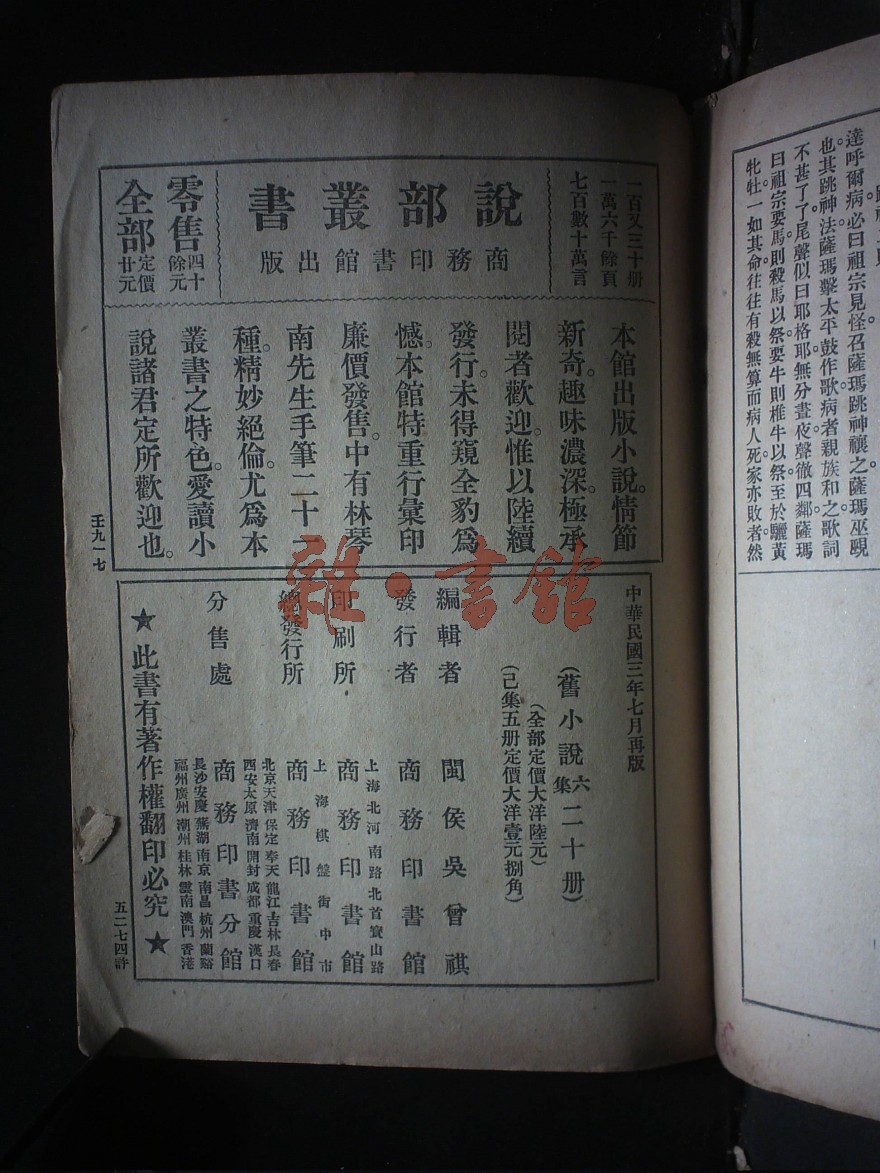 達呼爾病必曰祖宗見怪召薩瑪跳神禳之薩瑪巫覡
也其跳神法薩瑪擊太平鼓作歌病者親族和之歌詞
不甚了了尾聲似曰耶格耶無分晝夜聲徹四鄰薩瑪
曰祖宗要馬則殺馬以祭要牛則椎牛以祭至於驪黃
牝牡一如其命往往有殺無算而病人死家亦敗者然
一百又三十册
一萬六千餘頁
七百數十萬言
說部叢書
商務印書館出版
零售四十餘元
全部定價廿元
本館出版小說。情節
新奇。趣味濃深。極承
閱者歡迎。惟以陸續
發行。未得窺全豹爲
憾。本館特重行彙印
廉價發售。中有林琴
南先生手筆二十一
種。精妙絕倫。尤爲本
叢書之特色。愛讀小
說諸君定所歡迎也。
壬九一七
中華民國三年七月再版
(舊小說六集二十册)
(全部定價大洋陸元)
(己集五册定價大洋壹元捌角)
編輯者 閩侯吳曾祺
發行者 商務印書館
上海北河南路北首寶山路
印刷所 商務印書館
上海棋盤街中市
總發行所 商務印書館
北京天津保定奉天龍江吉林長春
西安太原濟南開封成都重慶漢口
分售處 商務印書分館
長沙安慶蕪湖南京南昌杭州蘭谿
福州廣州潮州桂林雲南澳門香港
★此書有著作權翻印必究★
五二七四許
雜·書館